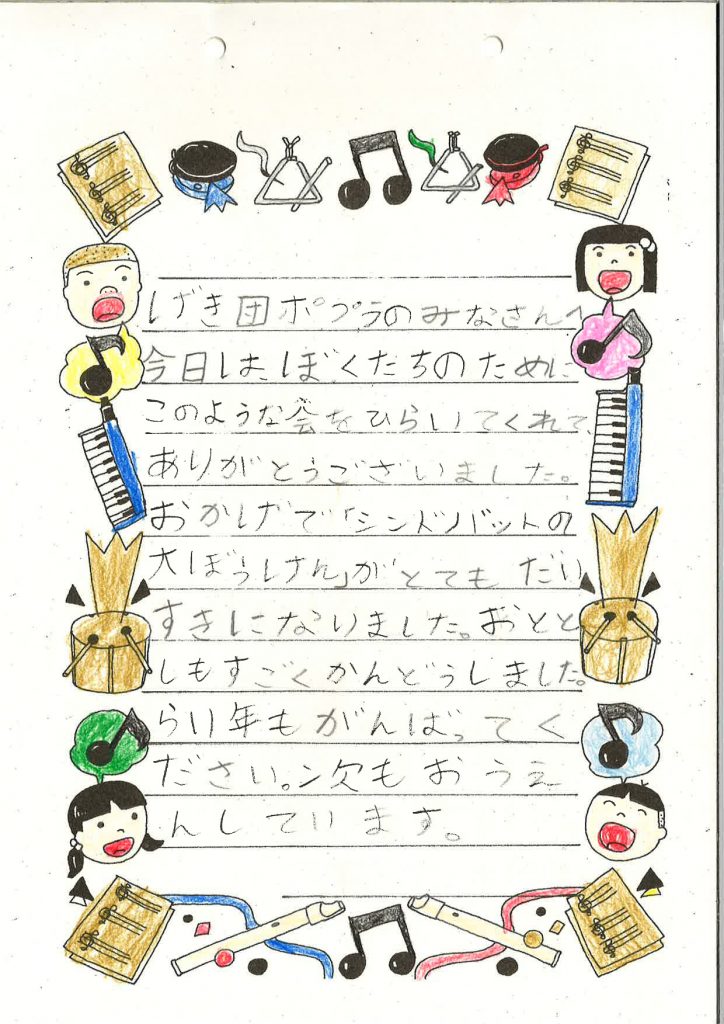 げき団ポプラのみなさんへ
今日は、ぼくたちのために
このような会をひらいてくれて、
ありがとうございました。
おかげで「シンドバットの
大ぼうけん」がとてもだい
すきになりました。おとと
しもすごくかんどうしました。
らい年もがんばってく
ださい。次もおうえ
んしています。